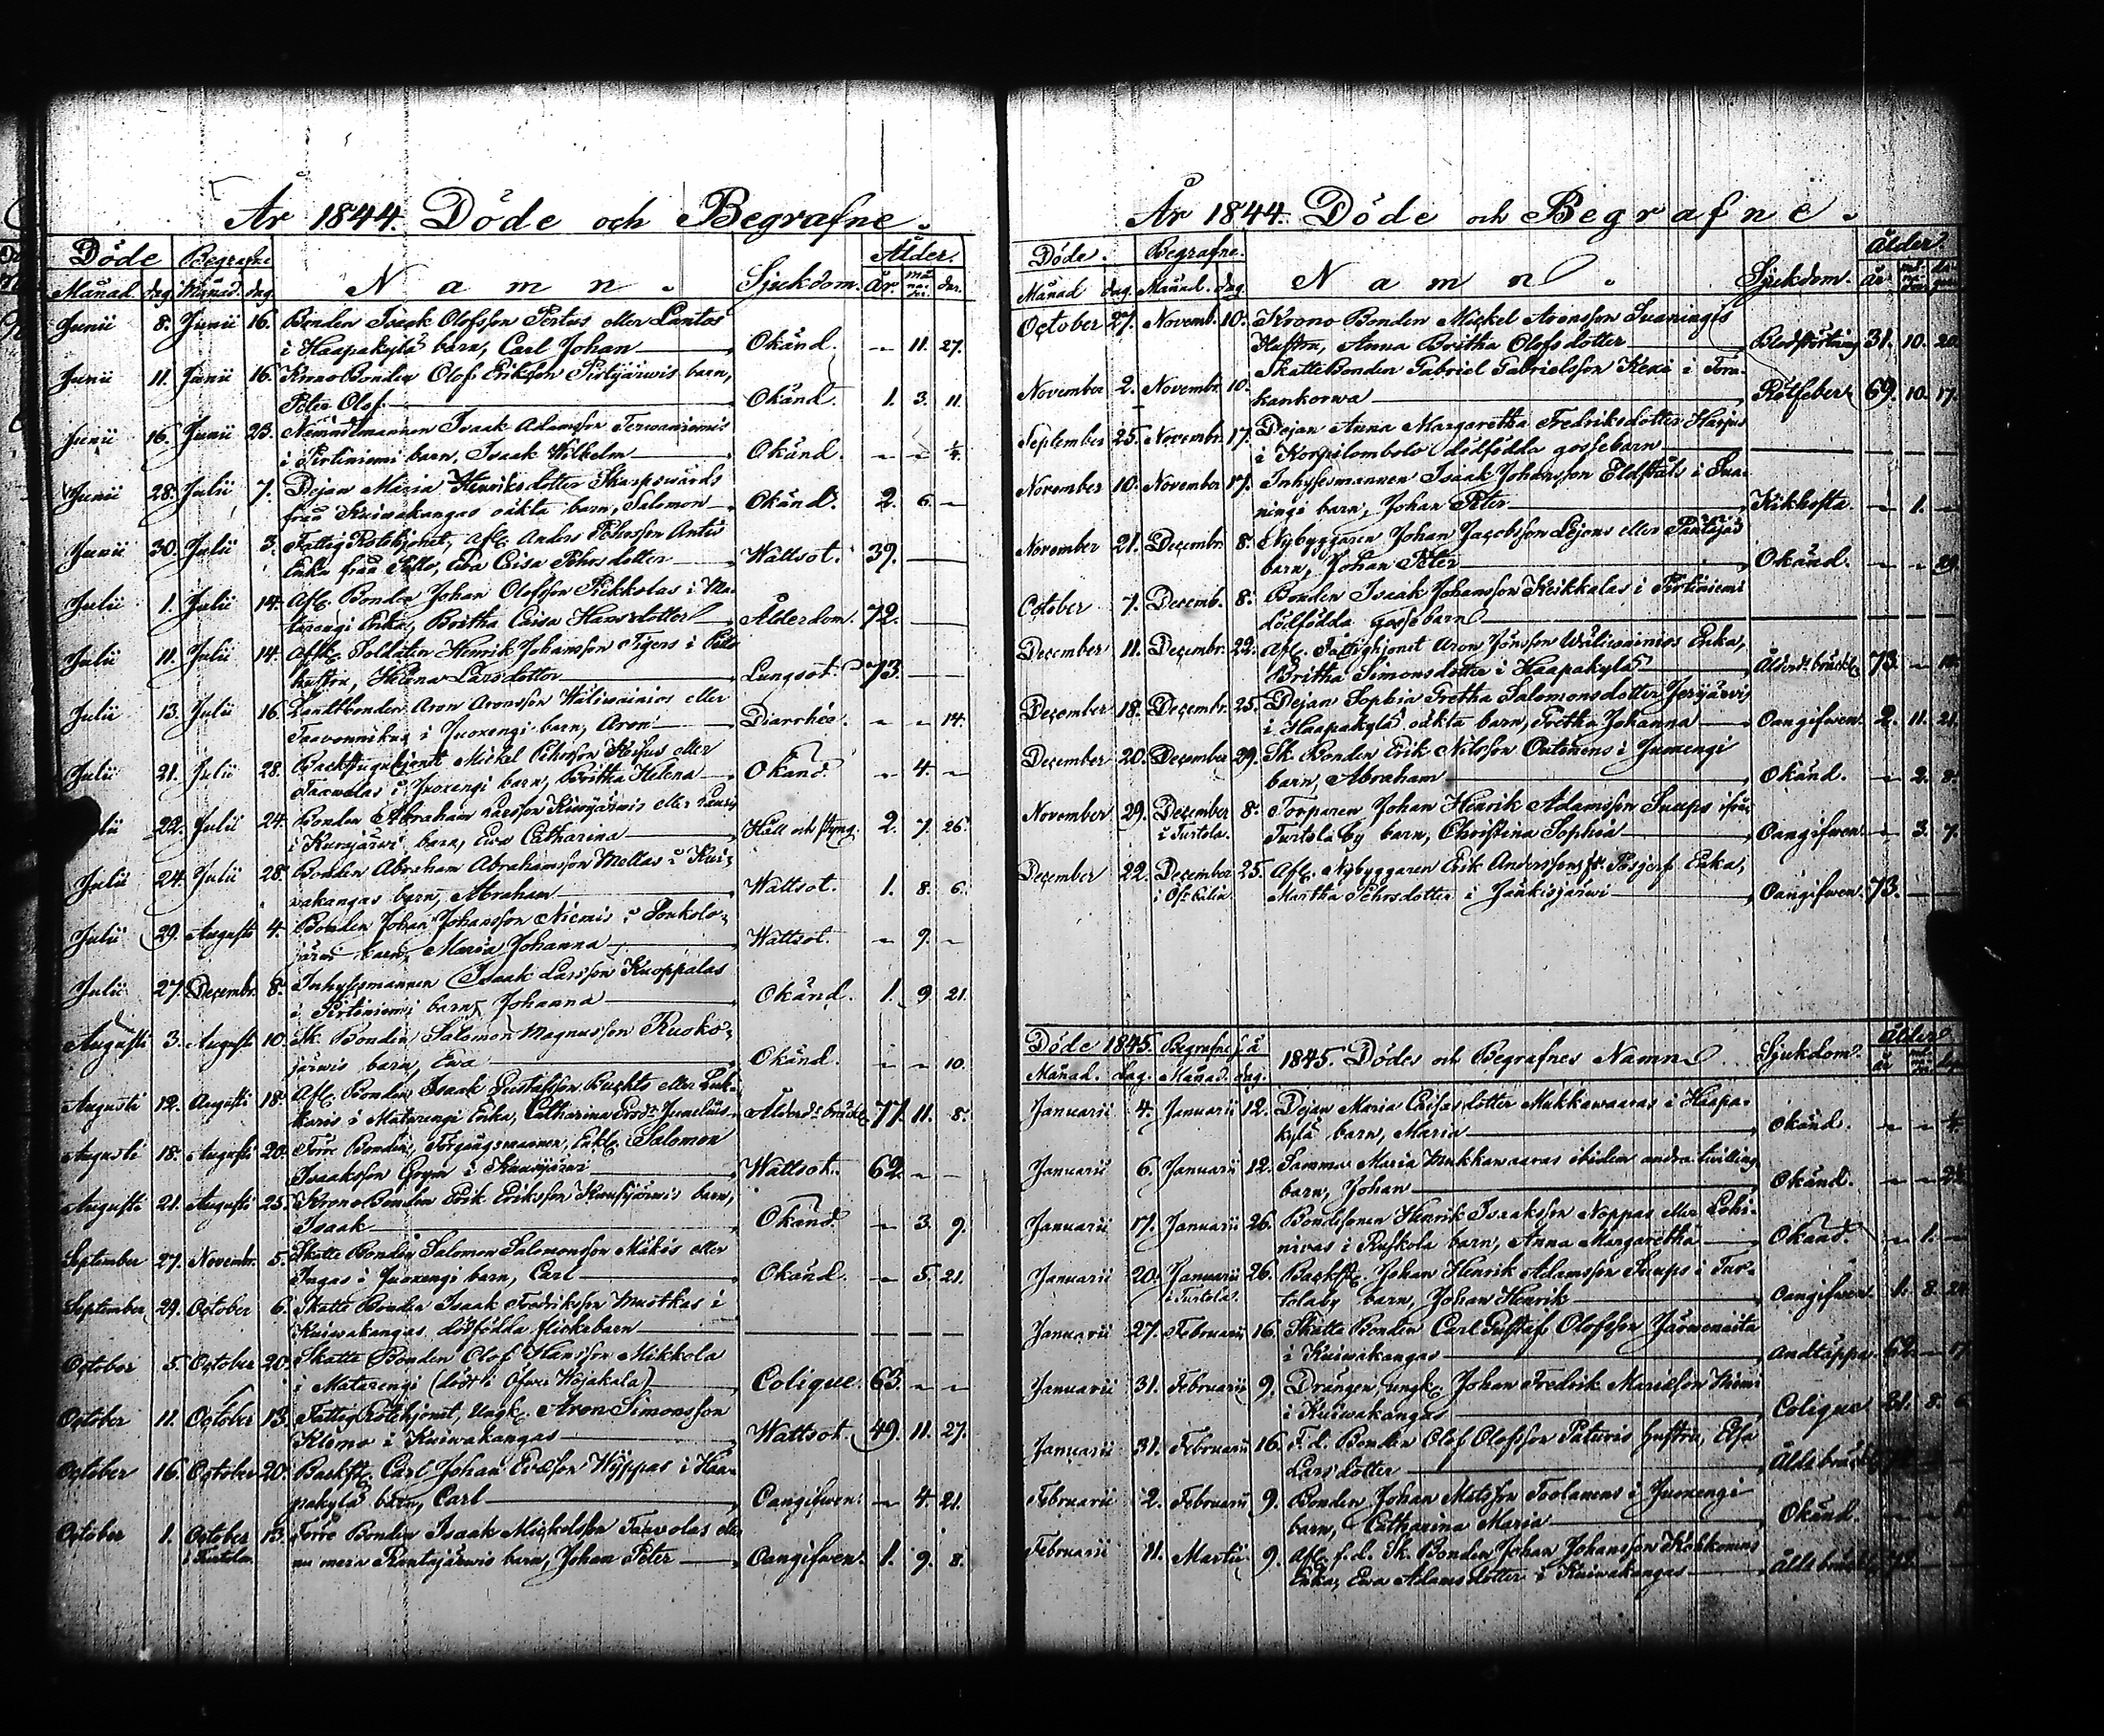 År 1844. Döde och Begrafne.
Döde Begrafne Namn. Sjukdom. Ålder.
Månad dag. Månad. dag. År. måna-der. dar.
Junii 8. Junii 16. Bonden Isaak Olofsson Pertus eller Lantos
i Haapakylä barn, Carl Johan Okänd. - 11. 27.
Junii 11. Junii 16. Krono Bonden Olof Eriksson Pirtijärwis barn,
Peter Olof Okänd 1. 3. 11.
Junii 16. Junii 23. Nämndemannen Isaak Adamsson
i Pirtiniemi barn, Isaak Wilhelm Okänd. - - ¼.
Junii 28. Julii 7. Pigan Maria Henriksdotter Skarpswärds
från Kuiwakangas oäkta barn, Salomon Okänd. 2. 6. -
Junii 30. Julii 3. FattigRotehjonet, Afl. Anders Pehrsson Antis
Enka från Pello, Ewa Caisa Pehrsdotter Wattsot. 39. -
Julii 1. Julii 14. Afl. Bonden Johan Olofsson Pekkolas i Ma-
tarengi Enka, Britha Caisa Hansdotter Ålderdom. 72. -
Julii 11. Julii 14. Aflk. Soldaten Henrik Johansson Tigers i Pello
hustru, Helena Larsdotter Lungsot. 73. -
Julii 13. Julii 16. Landtbonden Aron Aronsson Wäliwainios eller
i Juoxengi barn, Aron Diarrhée. - - 14.
Julii 21. Julii 28. Backstuguhjonet Mickel Pehrsson eller
Taawolas i Juoxengi barn, Britha Helena Okänd. - 4. -
22. Julii 24. Bonden Abraham Larsson Kuusijärwis eller
i Kuusijärwi barn, Ewa Catharina Håll och styng. 2. 7. 26.
Julii 24. Julii 28. Bonden Abraham Abrahamsson Mellas i Kui-
wakangas barn, Abraham Wattsot. 1. 8. 6.
Julii 29. Augusti 4. Bonden Johan Johansson Niemis i Soukolo-
järwi barn, Maria Johanna Wattsot. - 9. -
Julii 27. Decembr. 8. Inhysesmannen Isaak Larsson Kuoppalas
i Pirtiniemi barn, Johanna Okänd. 1. 9 21.
Augusti 3. Augusti 10. Sk. Bonden Salomon Magnusson Ruoko-
järwis barn, Ewa Okänd. - - 10.
Augusti 12. Augusti 18. Afl. Bonden Isaak Gustafsson Buchts eller Luk-
karis i Matarengi Enka, Catharina Junelius Ålderd. bräckl. 77. 11. 8.
Augusti 18. Augusti 20. Förre Bonden, Förgångsmannen, Enkl. Salomon
Isaaksson Grym i Kuusijärwi Wattsot. 62. - -
Augusti 21. Augusti 25. Krono Bonden Erik Eriksson Kuusijärwis barn,
Isaak Okänd. - 3. 9.
September 27. Novembr. 5. Skatte Bonden Salomon Salomonsson Mäkis eller
Ingas i Juoxengi barn, Carl Okänd. - 5. 21.
September 29. October 6. Skatte Bonden Isaak Fredriksson Muotkas i
Kuiwakangas dödfödda flickebarn
October 5. October 20. Skatte Bonden Olof Hansson Mikkola
i Matarengi (död i Öfwer Wojakala) Colique. 63. - -
October 11. October 13. FattigRotehjonet, Ungk. Aron Simonsson
Klemo i Kuiwakangas Wattsot. 49. 11. 27.
October 16. October 20. Backst. Carl Johan Evasson Wyppas i Haa-
pakylä barn, Carl Oangifwen. - 4. 21.
October 1. October 13. Förre Bonden Isaak Mickelsson Taavolas eller
i Turtola. nu mera Rantajärwis barn, Johan Peter Oangifwen. 1. 9. 8.
År 1844. Döde och Begrafne.
Döde. Begrafne. Namn. Sjukdom. Ålder.
Månad dag. Månad. dag. År
October 27. Novemb. 10. Krono Bonden Mickel Aronsson Svaningis
Hustru, Anna Britha Olofsdotter Blodstörtning 31. 10. 20.
November 2. Novembr. 10. Skatte Bonden Gabriel Gabrielsson Kexi i Torra-
kankorwa Rötfeber 69. 10. 17.
September 25. Novembr. 17. Pigan Anna Margaretha Fredriksdotter Harjus
i Korpilombolo dödfödda gossebarn
November 10. November 17. Inhysesmannen Isaak Johansson Eldståls i Sva-
ningi barn, Johan Peter Kikhosta - 1. -
November 21. Decembr. 8. Nybyggaren Johan Jacobsson Lejons eller
barn, Johan Peter Okänd. - - 29.
October 7. Decemb. 8. Bonden Isaak Johansson Keikkalas i Pirtiniemi
dödfödda gossebarn
December 11. Decembr. 22. Afl. Fattighjonet Aron Jönsson Wäliwainios Enka,
Britha Simonsdotter i Haapakylä Ålderd. bräckl. 73. -
December 18. Decembr. 25. Pigan Sophia Gretha Salomonsdotter Jerijärvis
i Haapakylä oäkta barn, Gretha Johanna Oangifwen. 2. 11. 21.
December 20. December 29. Sk. Bonden Erik Nilsson Outinens i Juoxengi
barn, Abraham Okänd. - 2. 8.
November 29. December 8. Torparen Johan Henrik Adamsson Snups ifrån
i Turtola. Turtola by barn, Christina Sophia Oangifwen - 3. 7.
December 22. December 25. Afl. Nybyggaren Erik Andersson Enka,
Martha Pehrsdotter i Jänkisjärwi Oangifwen. 73. -
Döde 1845. Begrafne s. å 1845. Dödes och Begrafnes Namn. Sjukdom. Ålder
Månad. dag. Månad. dag. år
Januarii 4. Januarii 12. Pigan Maria Caisasdotter Mukkawaaras i Haapa-
kylä barn, Maria Okänd. - - ¼.
Januarii 6. Januarii 12. Samma Maria Mukkawaaras ibidem andra tvilling
barn, Johan Okänd. - -
Januarii 17. Januarii 26. Bondesonen Henrik Isaaksson Noppas eller Lohi-
nivas i Ruskola barn, Anna Margaretha Okänd. - 1. -
Januarii 20. Januarii 26. Backst. Johan Henrik Adamsson Snups i Tur-
i Turtola. tola by barn, Johan Henrik Oangifwen. 1. 8. 24.
Januarii 27. Februarii 16. Skatte Bonden Carl Gustaf Olofsson Järwenäitä
i Kuiwakangas Andtäppa. 62. - 17
Januarii 31. Februarii 9. Drängen, ungk. Johan Fredrik Mariæson Niemi
i Kuiwakangas Colique 21. 8. 6.
Januarii 31. Februarii 16. F.d. Bonden Olof Olofsson Paturis hustru, Elsa
Larsdotter
Februarii 2. Februarii 9. Bonden Johan Matsson Toolanens i Juoxengi
barn, Catharina Maria Okänd. - -
Februarii 11. Martii 9. Afl. f.d. Sk. Bonden Johan Johansson Kohkoinens
Enka, Ewa Adamsdotter i Kuiwakangas